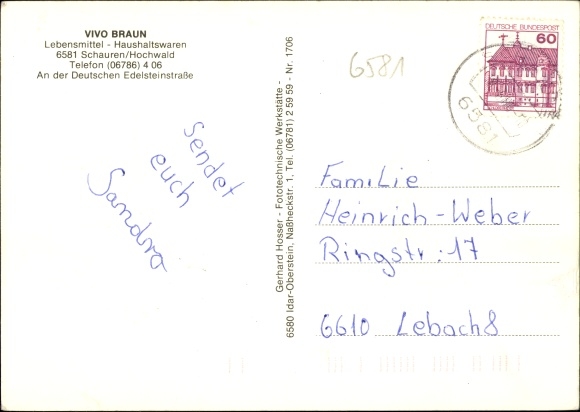 VIVO BRAUN
Lebensmittel - Haushaltswaren
6581 Schauren/Hochwald
Telefon (06786) 4 06
An der Deutschen Edelsteinstraße
sendet
euch
Sandra
Gerhard Hosser - Fototechnische Werkstätte -
6580 Idar-Oberstein, Naßheckstr. 1, Tel. (06781) 2 59 59 - Nr. 1706
6581
DEUTSCHE BUNDESPOST
60
6581
Familie
Heinrich-Weber
Ringstr. 17
6610 Lebach 8